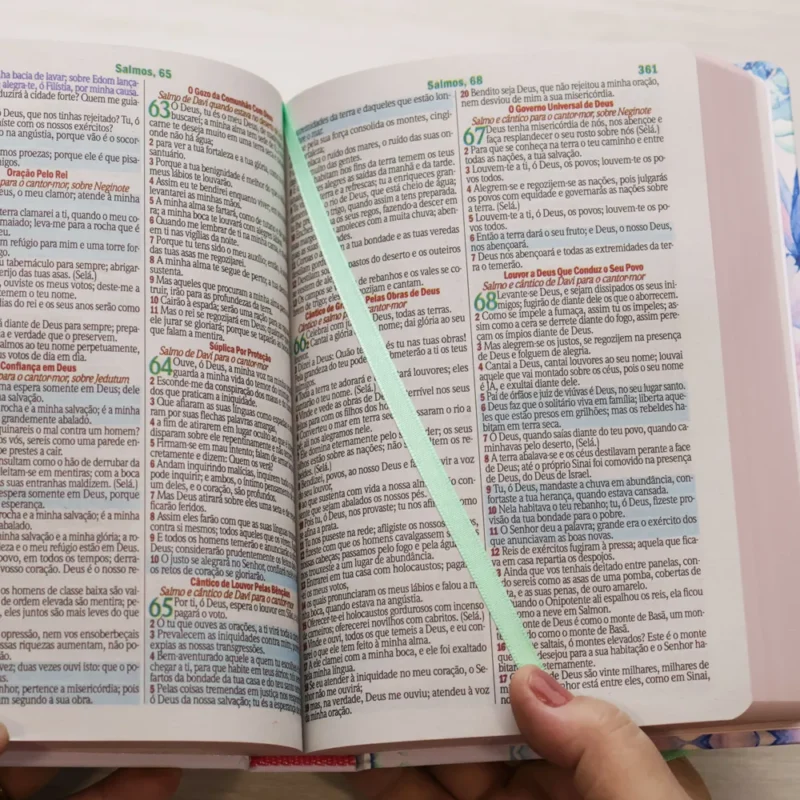 Salmos, 65
lavar; sobre Edom lança-
alegra-te, ó Filístia, por minha causa.
duzirá à cidade forte? Quem me guia-
Deus, que nos tinhas rejeitado? Tu, ó
com os nossos exércitos?
na angústia, porque vão é o socor-
proezas; porque ele é que pisa-
Oração Pelo Rei
para o cantor-mor, sobre Neginote
o meu clamor; atende à minha
terra clamarei a ti, quando o meu co-
leva-me para a rocha que é
refúgio para mim e uma torre for-
tabernáculo para sempre; abrigar-
das tuas asas. (Selá.)
ouviste os meus votos; deste-me a
temem o teu nome.
do rei e os seus anos serão como
diante de Deus para sempre; prepa-
e verdade que o preservem.
salmos ao teu nome perpetuamente,
votos de dia em dia.
Confiança em Deus
para o cantor-mor, sobre Jedutum
espera somente em Deus; dele
salvação.
rocha e a minha salvação; é a minha
grandemente abalado.
contra um homem?
vós, sereis como uma parede en-
prestes a cair.
como o hão de derrubar da
deleitam-se em mentiras; com a boca
suas entranhas maldizem. (Selá.)
espera somente em Deus, porque
esperança.
rocha e a minha salvação; é a minha
abalado.
minha salvação e a minha glória; a ro-
e o meu refúgio estão em Deus.
povo, em todos os tempos; derra-
vosso coração. Deus é o nosso re-
os homens de classe baixa são vai-
de ordem elevada são mentira; pe-
eles juntos são mais leves do que
opressão, nem vos ensoberbeçais
riquezas aumentam, não po-
vez; duas vezes ouvi isto: que o po-
pertence a misericórdia; pois
segundo a sua obra.
O Gozo da Comunhão Com
Salmo de Davi quando estava no
63 Ó Deus, tu és o meu
buscarei; a minha alma tem
carne te deseja muito em uma terra
onde não há água;
2 para ver a tua fortaleza e a tua glória,
santuário.
3 Porque a tua benignidade é melhor do que
meus lábios te louvarão.
4 Assim eu te bendirei enquanto
levantarei as minhas mãos.
5 A minha alma se fartará, como de
ra; a minha boca te louvará com alegres
6 Quando me lembrar de ti na minha cama
em ti nas vigílias da noite.
7 Porque tu tens sido o meu auxílio;
das tuas asas me regozijarei.
8 A minha alma te segue de perto; a tua
sustenta.
9 Mas aqueles que procuram a minha
truir, irão para as profundezas da terra.
10 Cairão à espada; serão uma ração
11 Mas o rei se regozijará em Deus;
ele jurar se gloriará; porque se taparão as
que falam a mentira.
Súplica Por Proteção
Salmo de Davi para o cantor-mor
64 Ouve, ó Deus, a minha voz na minha
guarda a minha vida do temor do
2 Esconde-me do conspiração dos maus
dos que praticam a iniquidade.
3 Que afiaram as suas línguas como espadas
ram por suas flechas palavras amargas,
4 a fim de atirarem em lugar oculto ao
disparam sobre ele repentinamente e não
5 Firmam-se em mau intento; falam de armar
cretamente e dizem: Quem os verá?
6 Andam inquirindo malícias, inquirem tudo
pode inquirir; e ambos, o íntimo pensamento
um deles, e o coração, são profundos.
7 Mas Deus atirará sobre eles uma seta
ficarão feridos.
8 Assim eles farão com que as suas línguas
contra si mesmos; todos aqueles que os
9 E todos os homens temerão e anunciarão
Deus; considerarão prudentemente os
10 O justo se alegrará no Senhor, confiará
os retos de coração se gloriarão.
Cântico de Louvor Pelas Bênçãos
Salmo e cântico de Davi para o cantor-mor
65 Por ti, ó Deus, espera o louvor
pagará o voto.
2 Ó tu que ouves as orações, a ti virá toda
3 Prevalecem as iniquidades contra
expias as nossas transgressões.
4 Bem-aventurado aquele a quem tu escolhes
chegar a ti, para que habite em teus átrios;
fartos da bondade da tua casa e do teu
5 Pelas coisas tremendas em justiça nos
ó Deus da nossa salvação; tu és a esperança
Salmos, 68
361
da terra e daqueles que estão lon-
mar;
pela sua força consolida os montes, cingi-
o ruído dos mares, o ruído das suas on-
das gentes.
habitam nos fins da terra temem os teus
alegres as saídas da manhã e da tarde.
terra e a refrescas; tu a enriqueces gran-
o rio de Deus, que está cheio de água;
trigo, quando assim a tens preparada.
os seus regos, fazendo-a descer em
amoleces com a muita chuva; aben-
a tua bondade, e as tuas veredas
pastos do deserto e os outeiros
de rebanhos e os vales se co-
regozijam e cantam.
Pelas Obras de Deus
Cântico e salmo para o cantor-mor
66 Celebrai com todas as terras.
Cantai a glória nome; dai glória ao seu
Dizei a Deus: Quão és tu nas tuas obras!
do teu poder submeterão a ti os teus
a terra te adorará e louvores; eles
o teu nome. (Selá.)
Vinde e vede as obras de terrível nos seus
para com os filhos dos
Converteu o mar em terra passaram o rio a
ali nos alegramos nele.
Ele domina eternamente pelo seus
sobre as nações; não
(Selá.)
Bendizei, povos, ao nosso Deus e a voz
louvor,
que sustenta com vida a nossa alma con-
que sejam abalados os nossos pés.
Pois tu, ó Deus, nos provaste; tu nos como
nos puseste na rede; afligiste os nossos
fizeste com que os homens cavalgassem
cabeças; passamos pelo fogo e pela
nos trouxeste a um lugar de abundância.
Entrarei em tua casa com holocaustos;
meus votos,
os quais pronunciaram os meus lábios e falou a
boca, quando estava na angústia.
Oferecer-te-ei holocaustos gordurosos com incenso
carneiros; oferecerei novilhos com cabritos. (Selá.)
Vinde e ouvi, todos os que temeis a Deus, e eu con-
o que ele tem feito à minha alma.
A ele clamei com a minha boca, e ele foi exaltado
minha língua.
Se eu atender à iniquidade no meu coração, o Se-
não me ouvirá;
mas, na verdade, Deus me ouviu; atendeu à voz
da minha oração.
20 Bendito seja Deus, que não rejeitou a minha oração,
nem desviou de mim a sua misericórdia.
O Governo Universal de Deus
Salmo e cântico para o cantor-mor, sobre Neginote
67 Deus tenha misericórdia de nós, nos abençoe e
faça resplandecer o seu rosto sobre nós (Selá.)
2 Para que se conheça na terra o teu caminho e entre
todas as nações, a tua salvação.
3 Louvem-te a ti, ó Deus, os povos; louvem-te os po-
vos todos.
4 Alegrem-se e regozijem-se as nações, pois julgarás
os povos com equidade e governarás as nações sobre
a terra. (Selá.)
5 Louvem-te a ti, ó Deus, os povos; louvem-te os po-
vos todos.
6 Então a terra dará o seu fruto; e Deus, o nosso Deus,
nos abençoará.
7 Deus nos abençoará e todas as extremidades da ter-
ra o temerão.
Louvor a Deus Que Conduz o Seu Povo
Salmo e cântico de Davi para o cantor-mor
68 Levante-se Deus, e sejam dissipados os seus ini-
migos; fugirão de diante dele os que o aborrecem.
2 Como se impele a fumaça, assim tu os impeles; as-
sim como a cera se derrete diante do fogo, assim pere-
çam os ímpios diante de Deus.
3 Mas alegrem-se os justos, se regozijem na presença
de Deus e folguem de alegria.
4 Cantai a Deus, cantai louvores ao seu nome; louvai
aquele que vai montado sobre os céus, pois o seu nome
é JÁ, e exultai diante dele.
5 Pai de órfãos e juiz de viúvas é Deus, no seu lugar santo.
6 Deus faz que o solitário viva em família; liberta aque-
les que estão presos em grilhões; mas os rebeldes ha-
bitam em terra seca.
7 Ó Deus, quando saías diante do teu povo, quando ca-
minhavas pelo deserto, (Selá.)
8 A terra abalava-se e os céus destilavam perante a face
de Deus; até o próprio Sinai foi comovido na presença
de Deus, do Deus de Israel.
9 Tu, ó Deus, mandaste a chuva em abundância, con-
fortaste a tua herança, quando estava cansada.
10 Nela habitava o teu rebanho; tu, ó Deus, fizeste pro-
visão da tua bondade para o pobre.
11 O Senhor deu a palavra; grande era o exército dos
que anunciavam as boas novas.
12 Reis de exércitos fugiram à pressa; aquela que fica-
va em casa repartia os despojos.
13 Ainda que vos tenhais deitado entre panelas, con-
tudo sereis como as asas de uma pomba, cobertas de
e as suas penas, de ouro amarelo.
o Onipotente ali espalhou os reis, ela ficou
como a neve em Salmon.
monte de Deus é como o monte de Basã, um mon-
como o monte de Basã.
16 saltais, ó montes elevados? Este é o monte
desejou para a sua habitação e o Senhor ha-
eternamente.
17 de Deus são vinte milhares, milhares de
Senhor está entre eles, como em Sinai,